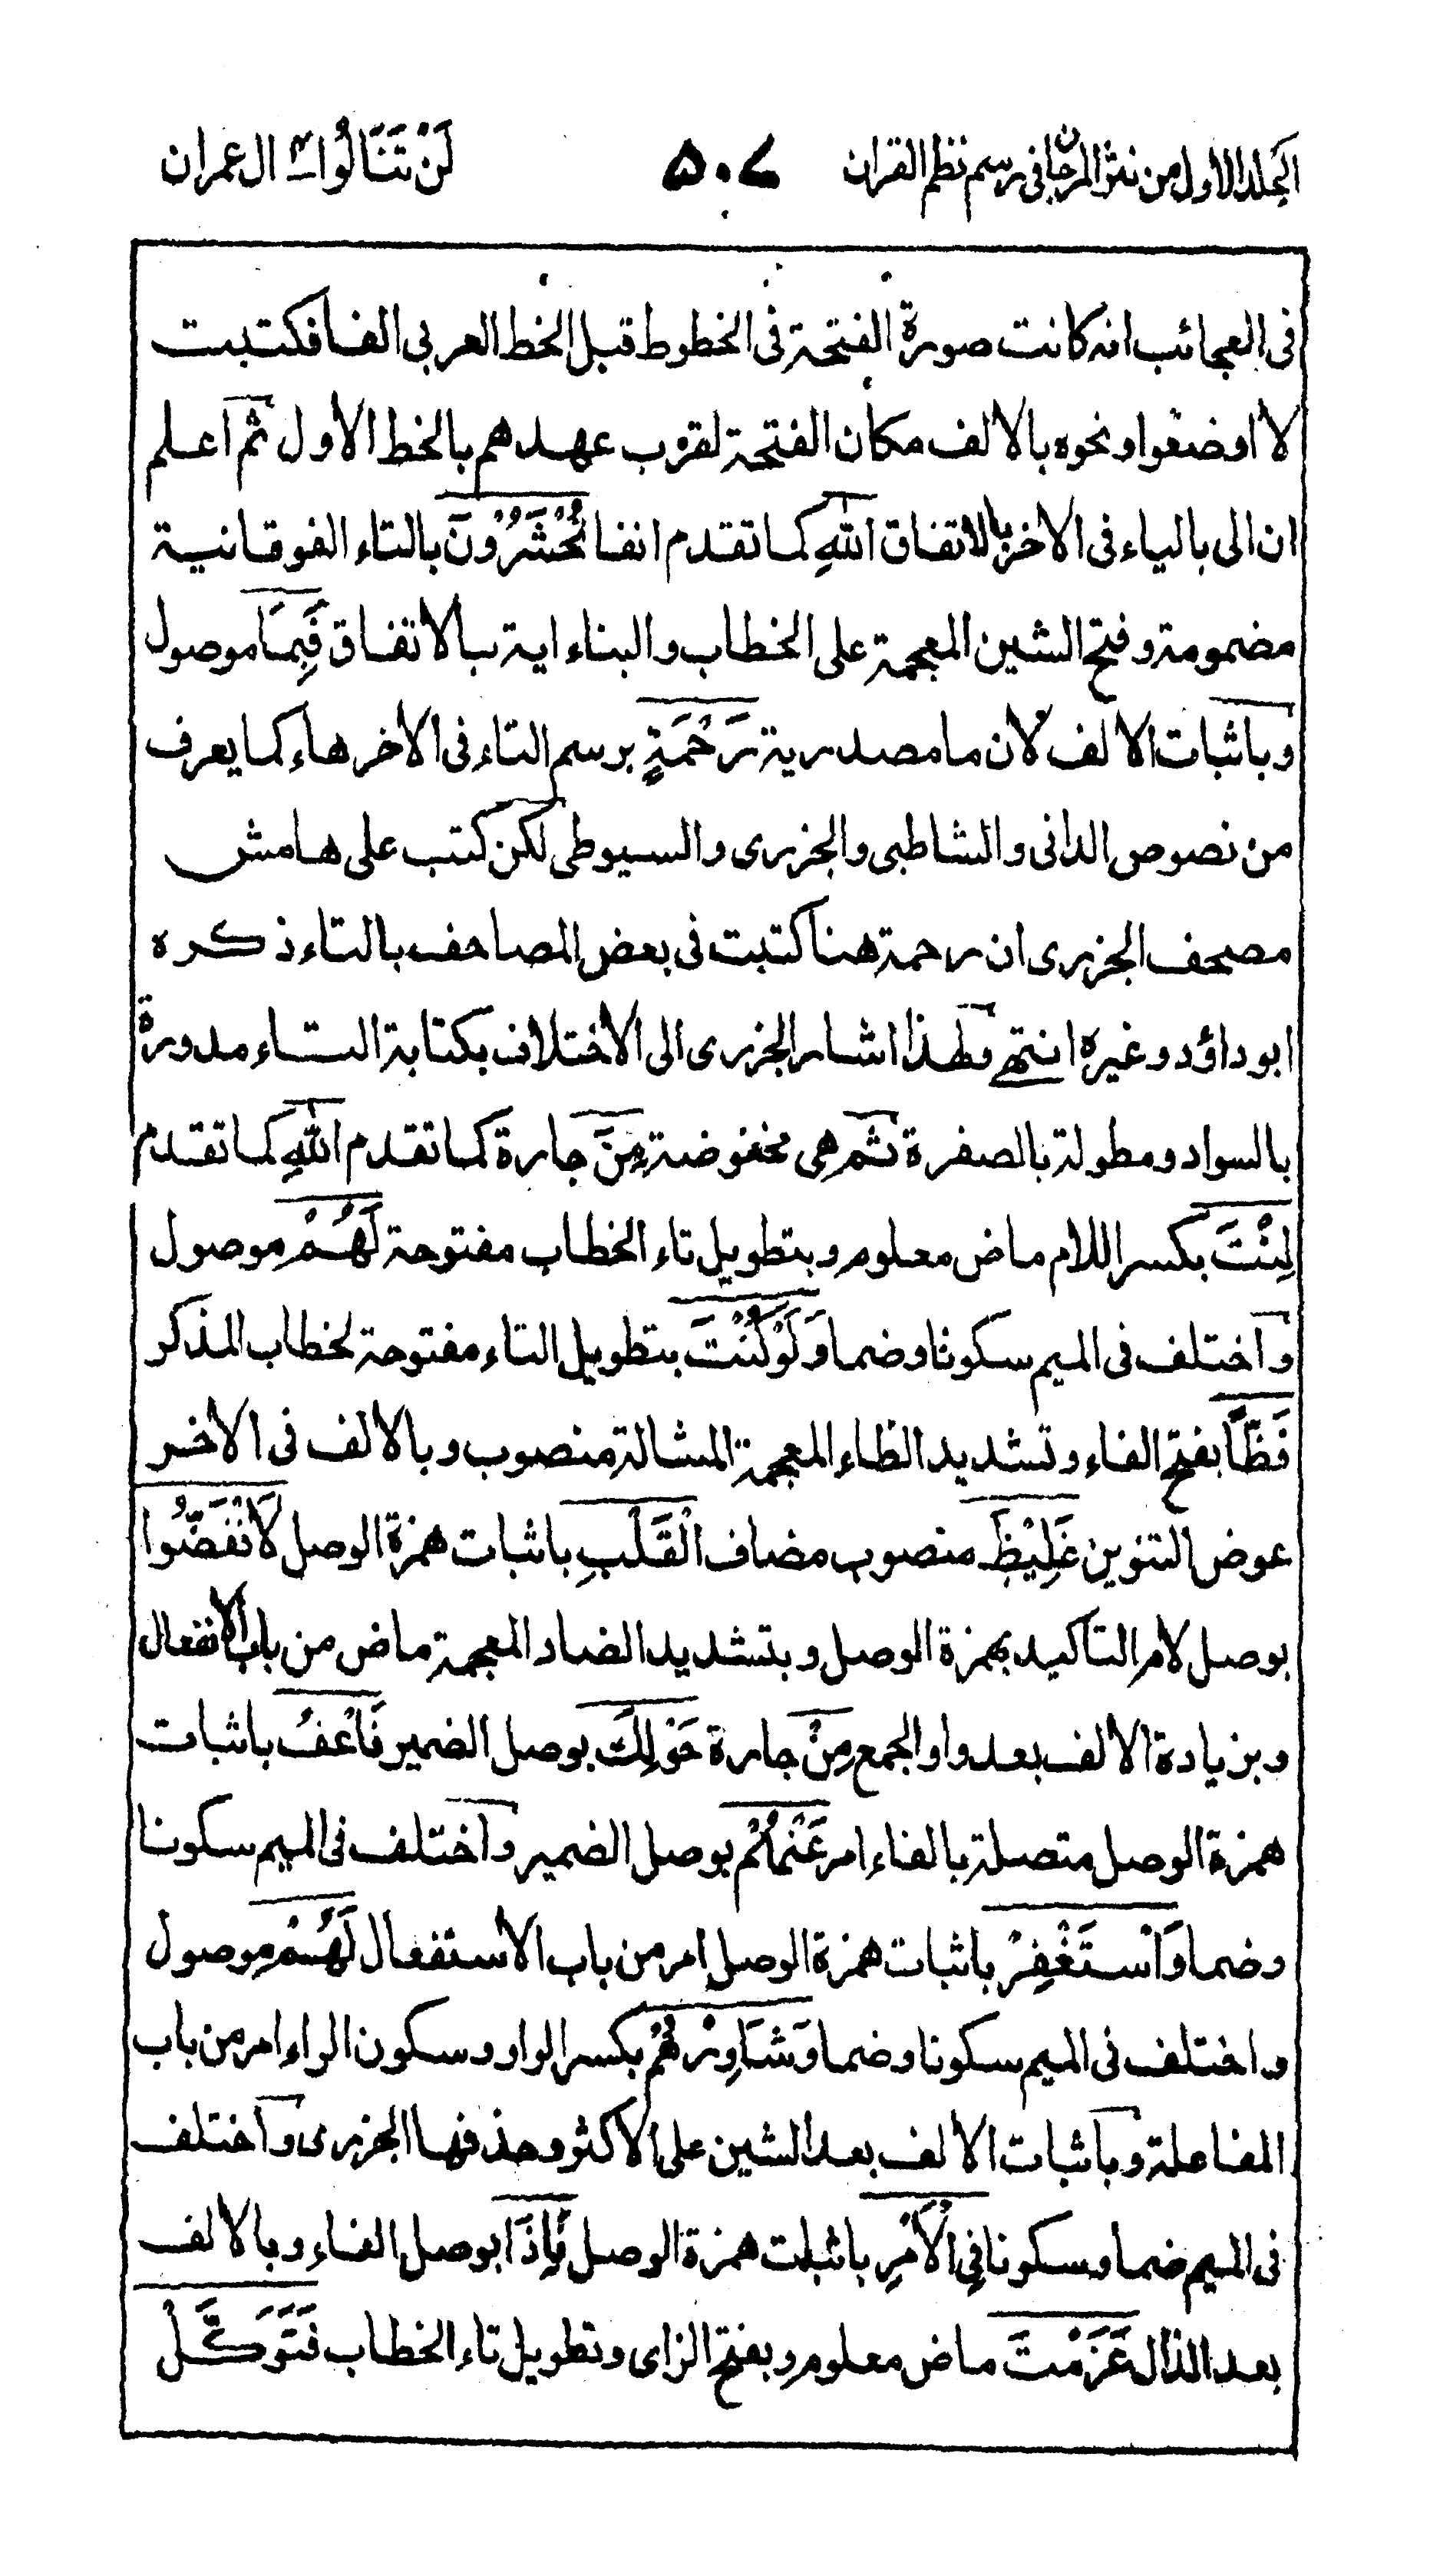 المجلد الاول من نثر المرجان فى رسم نظم القران ٥٠٧ لَنْ تَنَالُوا ٤ ال عمران
فى العجائب انه كانت صورة الفتحة فى الخطوط قبل الخط العربى الفا فكتبت
لا اوضعوا ونحوه بالالف مكان الفتحة لقرب عهدهم بالخط الاول ثم اعلم
ان الى بالياء فى الاخر بالاتفاق اللهِ كما تقدم انفا تُحْشَرُوْنَ بالتاء الفوقانية
مضمومة وفتح الشين المعجمة على الخطاب والبناء اية بالاتفاق فَبِمَا موصول
وباثبات الالف لان ما مصدرية رَحْمَةٍ برسم التاء فى الاخر هاء كما يعرف
من نصوص الدانى والشاطبى والجزرى والسيوطى لكن كتب على هامش
مصحف الجزرى ان رحمة هنا كتبت فى بعض المصاحف بالتاء ذكره
ابو داؤد وغيره انتهى ولهذا اشار الجزرى الى الاختلاف بكتابة التاء مدورة
بالسواد ومطولة بالصفرة ثم هى مخفوضة مِنَ جارة كما تقدم اللهِ كما تقدم
لِنْتَ بكسر اللام ماض معلوم وبتطويل تاء الخطاب مفتوحة لَهُمْ موصول
واختلف فى الميم سكونا وضما وَلَوْ كُنْتَ بتطويل التاء مفتوحة لخطاب المذكر
فَظًّا بفتح الفاء وتشديد الظاء المعجمة المشالة منصوب وبالالف فى الاخر
عوض التنوين غَلِيْظَ منصوب مضاف الْقَلْبِ باثبات همزة الوصل لَانْفَضُّوا
بوصل لام التاكيد بهمزة الوصل وبتشديد الضاد المعجمة ماض من باب الانفعال
وبزيادة الالف بعد واو الجمع مِنْ جارة حَوْلِكَ بوصل الضمير فَاعْفُ باثبات
همزة الوصل متصلة بالفاء امر عَنْهُمْ بوصل الضمير واختلف فى الميم سكونا
وضما وَاسْتَغْفِرْ باثبات همزة الوصل امر من باب الاستفعال لَهُمْ موصول
واختلف فى الميم سكونا وضما وَشَاوِرْهُمْ بكسر الواو وسكون الراء امر من باب
المفاعلة وباثبات الالف بعد الشين على الاكثر وحذفها الجزرى واختلف
فى الميم ضما وسكونا فِى الْاَمْرِ باثبات همزة الوصل فَاِذَا بوصل الفاء وبالالف
بعد الذال عَزَمْتَ ماض معلوم وبفتح الزاى وتطويل تاء الخطاب فَتَوَكَّلْ